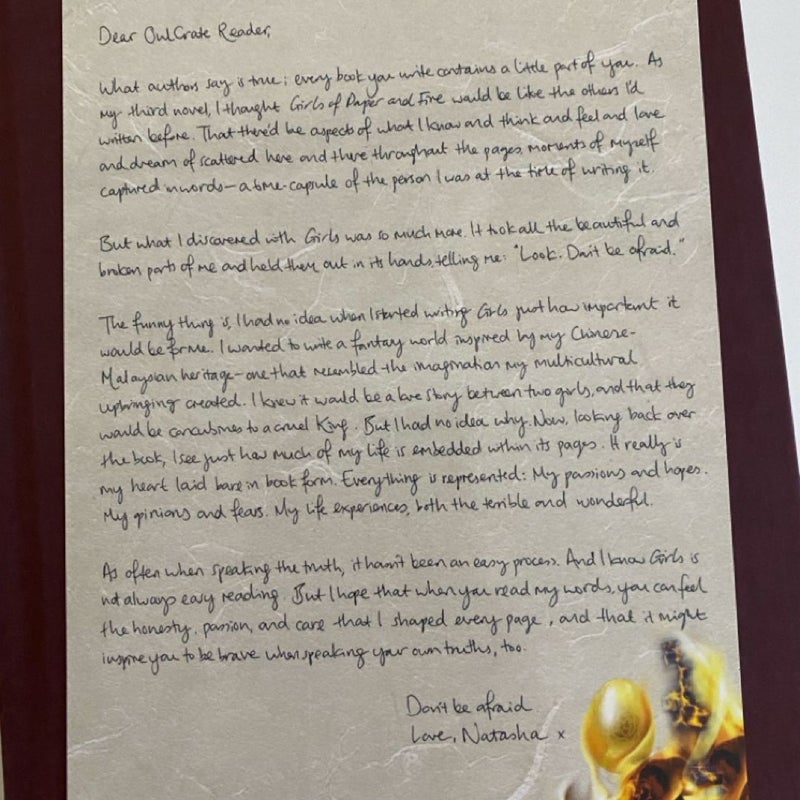 Dear OwlCrate Reader,
What authors say is true; every book you write contains a little part of you. As
my third novel, I thought Girls of Paper and Fire would be like the others I'd
written before. That there'd be aspects of what I know and think and feel and love
and dream of scattered here and there throughout the pages, moments of myself
captured in words – a time-capsule of the person I was at the time of writing it.
But what I discovered with Girls was so much more. It took all the beautiful and
broken parts of me and held them out in its hands, telling me: "Look. Don't be afraid."
The funny thing is, I had no idea when I started writing Girls just how important it
would be for me. I wanted to write a fantasy world inspired by my Chinese-
Malaysian heritage – one that resembled the imagination my multicultural
upbringing created. I knew it would be a love story between two girls, and that they
would be concubines to a cruel King. But I had no idea why. Now, looking back over
the book, I see just how much of my life is embedded within its pages. It really is
my heart laid bare in book form. Everything is represented: My passions and hopes.
My opinions and fears. My life experiences, both the terrible and wonderful.
As often when speaking the truth, it hasn't been an easy process. And I know Girls is
not always easy reading. But I hope that when you read my words, you can feel
the honesty, passion, and care that I shaped every page, and that it might
inspire you to be brave when speaking your own truths, too.
Don't be afraid
Love, Natasha x